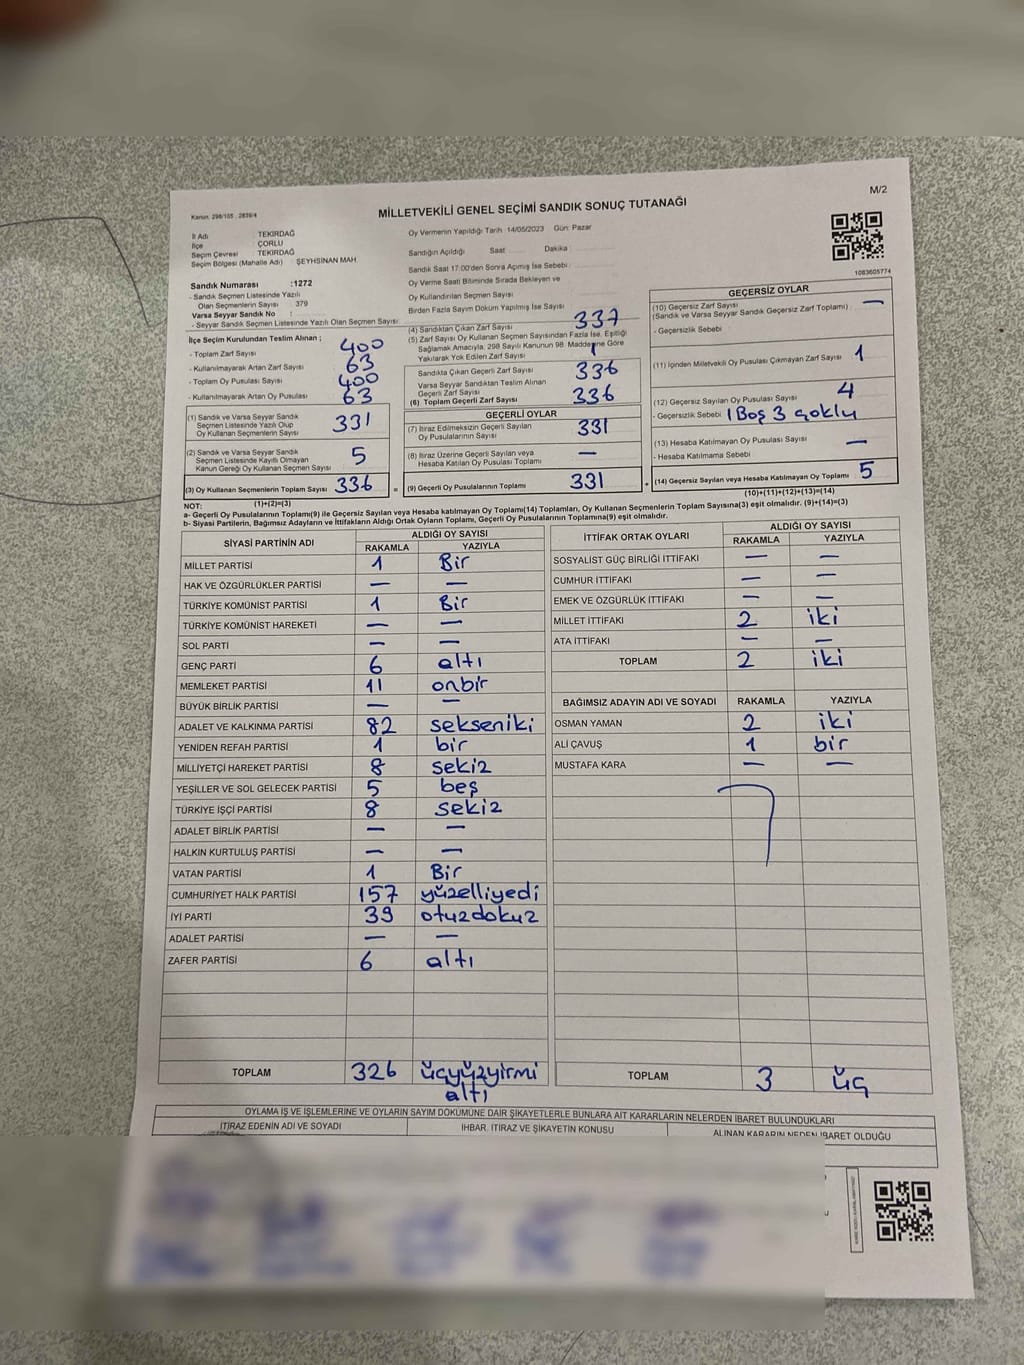 M/2
Kanun: 298/105 2839/4
MİLLETVEKİLİ GENEL SEÇİMİ SANDIK SONUÇ TUTANAĞI
İl Adı : TEKİRDAĞ
İlçe : ÇORLU
Seçim Çevresi : TEKİRDAĞ
Seçim Bölgesi (Mahalle Adı) : ŞEYHSİNAN MAH.
Oy Vermenin Yapıldığı Tarih :14/05/2023 Gün: Pazar
Sandığın Açıldığı Saat Dakika :
Sandık Saat 17:00'den Sonra Açılmış İse Sebebi :
Oy Verme Saati Bitiminde Sırada Bekleyen ve
Oy Kullandırılan Seçmen Sayısı
Birden Fazla Sayım Döküm Yapılmış İse Sayısı
1083605774
Sandık Numarası :1272
- Sandık Seçmen Listesinde Yazılı
Olan Seçmenlerin Sayısı : 379
Varsa Seyyar Sandık No :
- Seyyar Sandık Seçmen Listesinde Yazılı Olan Seçmen Sayısı
İlçe Seçim Kurulundan Teslim Alınan ;
- Toplam Zarf Sayısı 400
- Kullanılmayarak Artan Zarf Sayısı 63
- Toplam Oy Pusulası Sayısı 400
- Kullanılmayarak Artan Oy Pusulası 63
(1) Sandık ve Varsa Seyyar Sandık
Seçmen Listesinde Yazılı Olup
Oy Kullanan Seçmenlerin Sayısı 331
(2) Sandık ve Varsa Seyyar Sandık
Seçmen Listesinde Kayıtlı Olmayan
Kanun Gereği Oy Kullanan Seçmen Sayısı 5
(3) Oy Kullanan Seçmenlerin Toplam Sayısı 336 =
(1)+(2)=(3)
(4) Sandıktan Çıkan Zarf Sayısı 337
(5) Zarf Sayısı Oy Kullanan Seçmen Sayısından Fazla İse, Eşitliği
Sağlamak Amacıyla, 298 Sayılı Kanunun 98. Maddesine Göre
Yakılarak Yok Edilen Zarf Sayısı 1
Sandıkta Çıkan Geçerli Zarf Sayısı 336
Varsa Seyyar Sandıktan Teslim Alınan
Geçerli Zarf Sayısı
(6) Toplam Geçerli Zarf Sayısı 336
GEÇERLİ OYLAR
(7) İtiraz Edilmeksizin Geçerli Sayılan
Oy Pusulalarının Sayısı 331
(8) İtiraz Üzerine Geçerli Sayılan veya
Hesaba Katılan Oy Pusulası Toplamı —
(9) Geçerli Oy Pusulalarının Toplamı 331 +
GEÇERSİZ OYLAR
(10) Geçersiz Zarf Sayısı
(Sandık ve Varsa Seyyar Sandık Geçersiz Zarf Toplamı) —
- Geçersizlik Sebebi
(11) İçinden Milletvekili Oy Pusulası Çıkmayan Zarf Sayısı 1
(12) Geçersiz Sayılan Oy Pusulası Sayısı 4
- Geçersizlik Sebebi 1 Boş 3 çoklu
(13) Hesaba Katılmayan Oy Pusulası Sayısı —
- Hesaba Katılmama Sebebi
(14) Geçersiz Sayılan veya Hesaba Katılmayan Oy Toplamı 5
(10)+(11)+(12)+(13)=(14)
NOT:
a- Geçerli Oy Pusulalarının Toplamı(9) ile Geçersiz Sayılan veya Hesaba katılmayan Oy Toplamı(14) Toplamları, Oy Kullanan Seçmenlerin Toplam Sayısına(3) eşit olmalıdır. (9)+(14)=(3)
b- Siyasi Partilerin, Bağımsız Adayların ve İttifakların Aldığı Ortak Oyların Toplamı, Geçerli Oy Pusulalarının Toplamına(9) eşit olmalıdır.
SİYASİ PARTİNİN ADI ALDIĞI OY SAYISI
RAKAMLA YAZIYLA
MİLLET PARTİSİ 1 Bir
HAK VE ÖZGÜRLÜKLER PARTİSİ — —
TÜRKİYE KOMÜNİST PARTİSİ 1 Bir
TÜRKİYE KOMÜNİST HAREKETİ — —
SOL PARTİ — —
GENÇ PARTİ 6 altı
MEMLEKET PARTİSİ 11 onbir
BÜYÜK BİRLİK PARTİSİ — —
ADALET VE KALKINMA PARTİSİ 82 sekseniki
YENİDEN REFAH PARTİSİ 1 bir
MİLLİYETÇİ HAREKET PARTİSİ 8 sekiz
YEŞİLLER VE SOL GELECEK PARTİSİ 5 beş
TÜRKİYE İŞÇİ PARTİSİ 8 sekiz
ADALET BİRLİK PARTİSİ — —
HALKIN KURTULUŞ PARTİSİ — —
VATAN PARTİSİ 1 Bir
CUMHURİYET HALK PARTİSİ 157 yüzelliyedi
İYİ PARTİ 39 otuzdokuz
ADALET PARTİSİ — —
ZAFER PARTİSİ 6 altı
TOPLAM 326 üçyüzyirmi
altı
İTTİFAK ORTAK OYLARI ALDIĞI OY SAYISI
RAKAMLA YAZIYLA
SOSYALİST GÜÇ BİRLİĞİ İTTİFAKI — —
CUMHUR İTTİFAKI — —
EMEK VE ÖZGÜRLÜK İTTİFAKI — —
MİLLET İTTİFAKI 2 iki
ATA İTTİFAKI — —
TOPLAM 2 iki
BAĞIMSIZ ADAYIN ADI VE SOYADI RAKAMLA YAZIYLA
OSMAN YAMAN 2 iki
ALİ ÇAVUŞ 1 bir
MUSTAFA KARA — —
TOPLAM 3 üç
OYLAMA İŞ VE İŞLEMLERİNE VE OYLARIN SAYIM DÖKÜMÜNE DAİR ŞİKAYETLERLE BUNLARA AİT KARARLARIN NELERDEN İBARET BULUNDUKLARI
İTİRAZ EDENİN ADI VE SOYADI İHBAR, İTİRAZ VE ŞİKAYETİN KONUSU ALINAN KARARIN NEDEN İBARET OLDUĞU